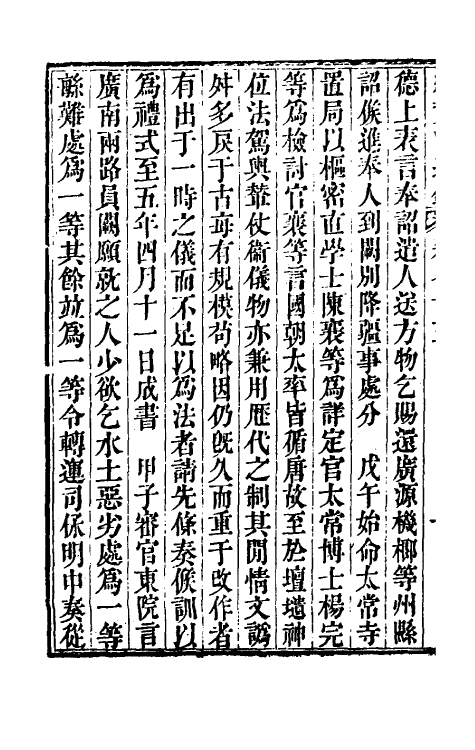 德上表言奉詔遣人送方物乞賜還廣源機榔等州縣
詔候進奉人到闕別降疆事處分　戊午始命太常寺
置局以樞密直學士陳襄等爲詳定官太常博士楊完
等爲檢討官襄等言國朝大率皆循唐故至於壇壝神
位法駕輿輦仗衞儀物亦兼用歷代之制其閒情文譌
舛多戾于古每有規模苟略因仍旣久而重于改作者
有出于一時之儀而不足以爲法者請先條奏候訓以
爲禮式至五年四月十一日成書　甲子審官東院言
廣南兩路員闕願就之人少欲乞水土惡劣處爲一等
縣難處爲一等其餘並爲一等令轉運司保明申奏從